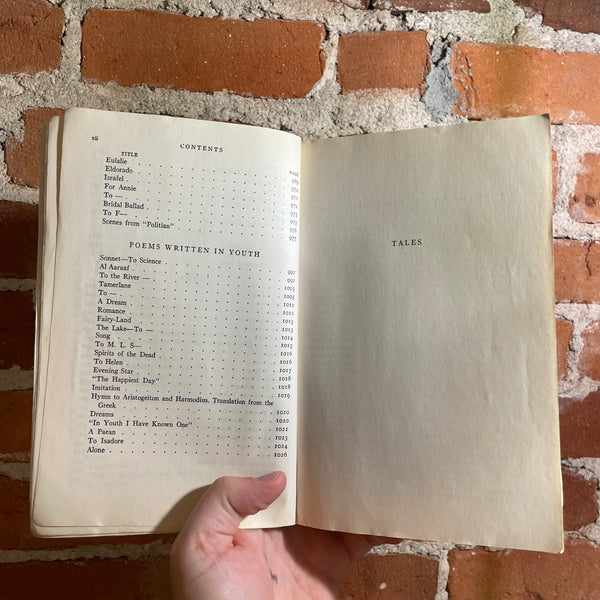 xii
CONTENTS
TITLE PAGE
Eulalie 969
Eldorado
Israfel
For Annie
To —
Bridal Ballad
To F—
Scenes from "Politian" 977
POEMS WRITTEN IN YOUTH
Sonnet—To Science 992
Al Aaraaf 992
To the River — 1005
Tamerlane 1005
To — 1012
A Dream 1012
Romance 1013
Fairy-Land 1013
The Lake—To — 1014
Song 1015
To M. L. S— 1016
Spirits of the Dead 1016
To Helen 1017
Evening Star 1018
"The Happiest Day" 1018
Imitation 1019
Hymn to Aristogeiton and Harmodius. Translation from the
Greek 1020
Dreams 1020
"In Youth I Have Known One" 1021
A Paean 1023
To Isadore 1024
Alone 1026
TALES